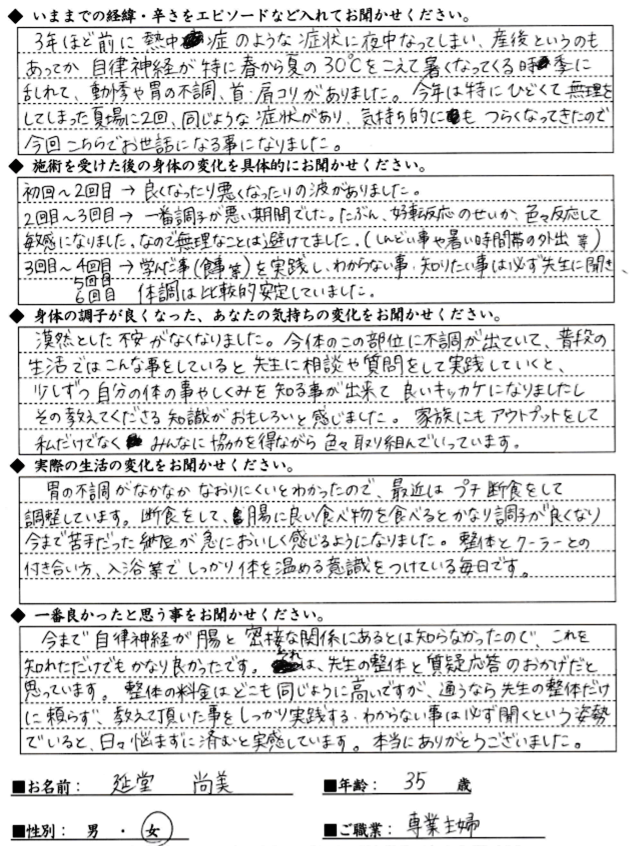 ◆ いままでの経緯・辛さをエピソードなど入れてお聞かせください。
3年ほど前に熱中症のような症状に夜中なってしまい、産後というのも
あってか自律神経が特に春から夏の30℃をこえて暑くなってくる時季に
乱れて、動悸や胃の不調、首・肩コリがありました。今年は特にひどくて無理を
してしまった夏場に2回、同じような症状があり、気持ち的にもつらくなってきたので
今回こちらでお世話になる事になりました。
◆ 施術を受けた後の身体の変化を具体的にお聞かせください。
初回〜2回目→良くなったり悪くなったりの波がありました。
2回目〜3回目→一番調子が悪い期間でした。たぶん、好転反応のせいか、色々反応して
敏感になりました。なので無理なことは避けてました。(しんどい事や暑い時間帯の外出 等)
3回目〜4回目→学んだ事(食事等)を実践し、わからない事・知りたい事は必ず先生に聞き、
5回目
6回目 体調は比較的安定していました。
◆ 身体の調子が良くなった、あなたの気持ちの変化をお聞かせください。
漠然とした不安がなくなりました。今体のこの部位に不調が出ていて、普段の
生活ではこんな事をしていると先生に相談や質問をして実践していくと、
少しずつ自分の体の事やしくみを知る事が出来て良いキッカケになりましたし
その教えてくださる知識がおもしろいと感じました。家族にもアウトプットをして
私だけでなくみんなに協力を得ながら色々取り組んでいっています。
◆ 実際の生活の変化をお聞かせください。
胃の不調がなかなかなおりにくいとわかったので、最近はプチ断食をして
調整しています。断食をして、腸に良い食べ物を食べるとかなり調子が良くなり
今まで苦手だった納豆が急においしく感じるようになりました。整体とクーラーとの
付き合い方、入浴等でしっかり体を温める意識をつけている毎日です。
◆ 一番良かったと思う事をお聞かせください。
今まで自律神経が腸と密接な関係にあるとは知らなかったので、これを
知れただけでもかなり良かったです。は、先生の整体と質疑応答のおかげだと
思っています。整体の料金はどこも同じように高いですが、通うなら先生の整体だけ
に頼らず、教えて頂いた事をしっかり実践する・わからない事は必ず聞くという姿勢
でいると、日々悩まずに済むと実感しています。本当にありがとうございました。
■お名前： 延堂 尚美 ■年齢： 35 歳
■性別： 男 ・ 女 ■ご職業： 専業主婦